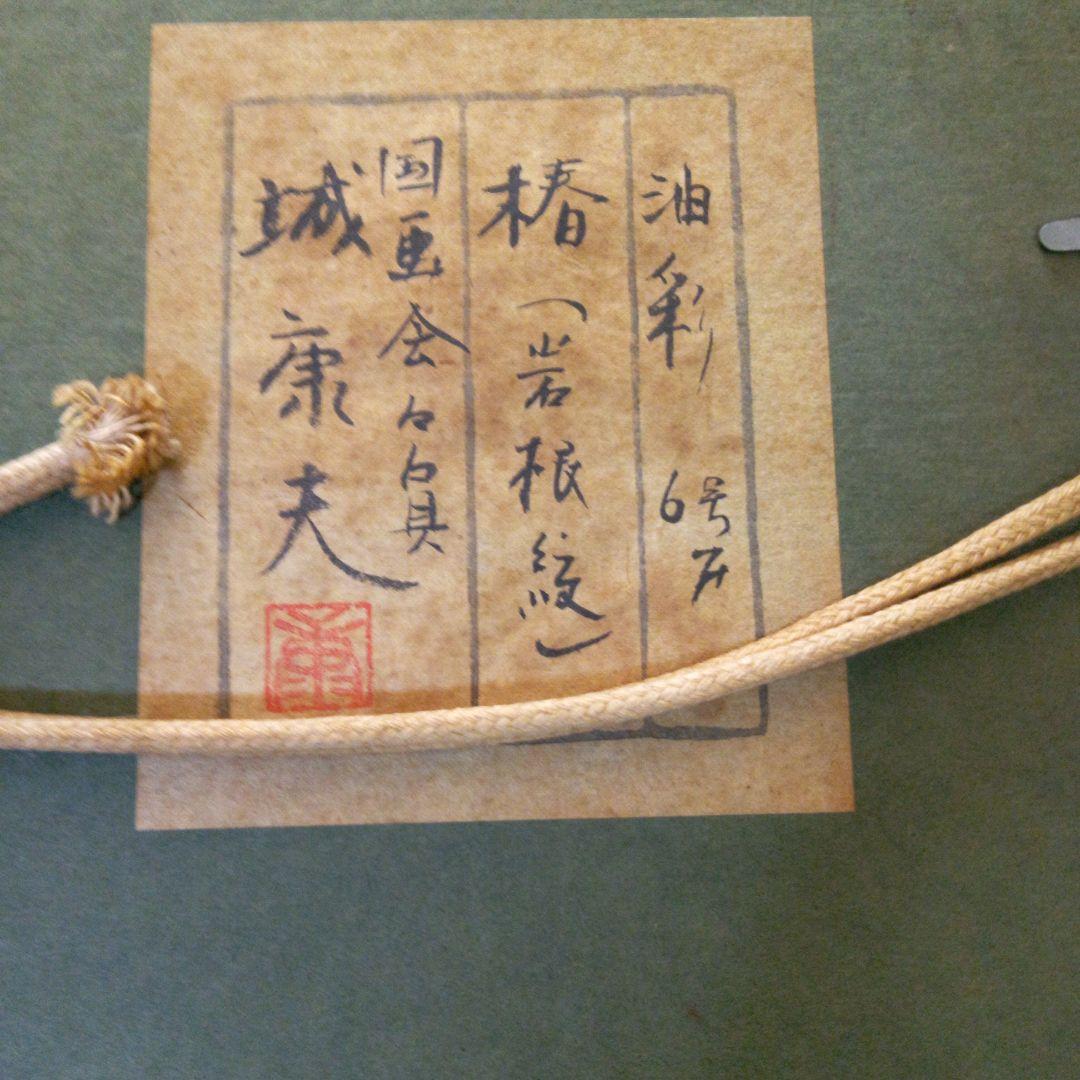 油彩 6号F
椿（岩根絞）
国画会々員
城康夫